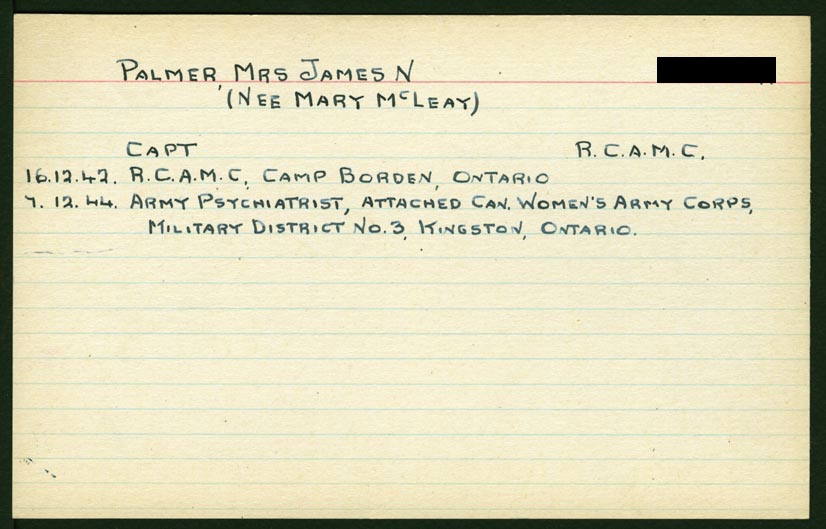 PALMER, MRS JAMES N
(NEE MARY McLEAY)
CAPT R.C.A.M.C.
16.12.42. R.C.A.M.C, CAMP BORDEN, ONTARIO
7.12.44. ARMY PSYCHIATRIST, ATTACHED CAN. WOMEN'S ARMY CORPS,
MILITARY DISTRICT NO.3, KINGSTON, ONTARIO.